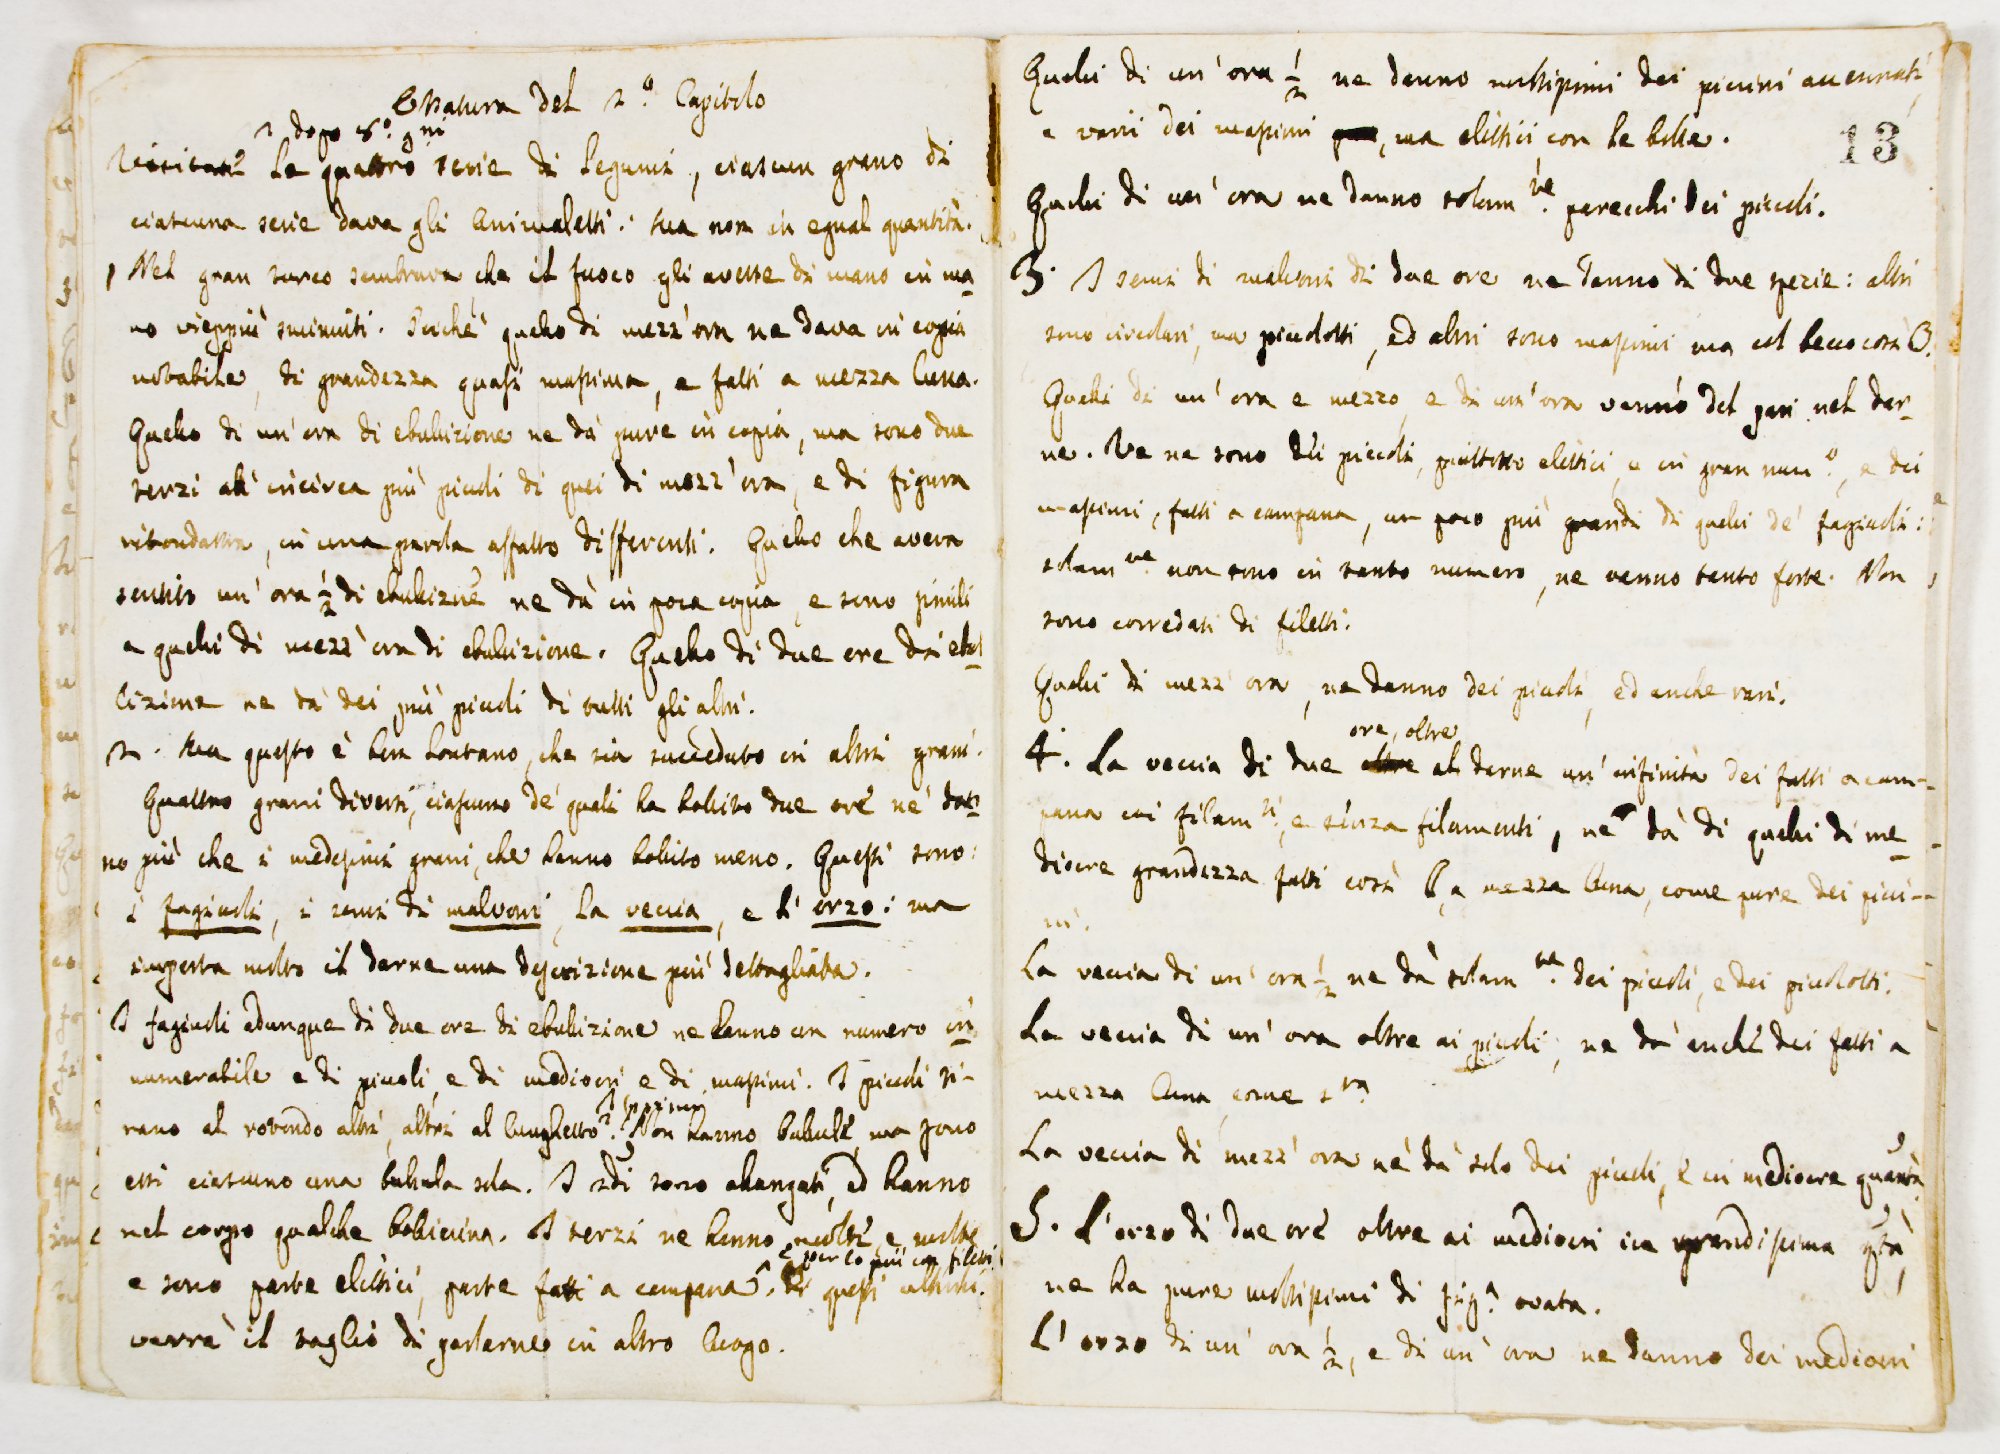 Ossatura del 2.° Capitolo
dopo 8.° gni
Visitati le quattro serie di legumi, ciascun grano di
ciascuna serie dava gli Animaletti: ma non in egual quantità.
Nel gran turco sembrava che il fuoco gli avesse di mano in ma-
no vieppiù sminuiti. Perché quello di mezz'ora ne dava in copia
notabile, di grandezza quasi massima, e fatti a mezza luna.
Quello di un'ora di ebullizione ne dà pure in copia, ma sono due
terzi all'incirca più piccoli di quei di mezz'ora, e di figura
ritondastra, in una parola affatto differenti. Quello che aveva
sentito un'ora ½ di ebullizne ne dà in poca copia, e sono simili
a quelli di mezz'ora di ebullizione. Quello di due ore di ebul-
lizione ne dà dei più piccoli di tutti gli altri.
2. Ma questo è ben lontano, che sia succeduto in altri grani.
Quattro grani diversi, ciascuno de' quali ha bollito due ore ne dan-
no più che i medesimi grani, che hanno bollito meno. Questi sono:
i fagiuoli, i semi di malvoni, la veccia, e l'orzo: ma
importa molto il darne una descrizione più dettagliata.
I fagiuoli adunque di due ore di ebullizione ne hanno un numero in-
numerabile e di piccoli, e di mediocri e di massimi. I piccoli ti-
rano al rotondo altri, altri al lunghetto. I primi
Non hanno bubule, ma sono
essi ciascuno una bubula sola. I 2di sono alungati, ed hanno
nel corpo qualche bollicina. I terzi ne hanno molte e molte
e per lo più con filetti.
e sono parte elittici, parte fatti a campana. Di questi ultimi
verrà il taglio di parlarne in altro luogo.
Quelli di un'ora ½ ne danno moltissimi dei piccini accennati,
e varii dei massimi, ma elittici con le bolle.
13
Quelli di un'ora ne danno solam.te parecchi dei piccoli.
3. I semi di malvoni di due ore ne danno di due spezie: altri
sono circolari, ma piccolotti, ed altri sono massimi ma col becco così
Quelli di un'ora e mezzo, e di un'ora vanno del pari nel dar-
ne. Ve ne sono dei piccoli, piuttosto elittici, e in gran num.°, e dei
massimi, fatti a campana, un poco più grandi di quelli de' fagiuoli:
solam.te non sono in tanto numero, ne vanno tanto forte. Non
sono corredati di filetti.
Quelli di mezz'ora, ne danno dei piccoli, ed anche rari.
ore, oltre
4. La veccia di due al darne un'infinità dei fatti a cam-
pana coi filam.ti, e senza filamenti, ne dà di quelli di me-
diocre grandezza fatti così a mezza luna, come pure dei picci-
ni.
La veccia di un'ora ½ ne dà solam.te dei piccoli, e dei piccolotti.
La veccia di un'ora oltre ai piccoli, ne dà anche dei fatti a
mezza luna, come s.ra
La veccia di mezz'ora ne dà solo dei piccoli, e in mediocre quantà.
5. L'orzo di due ore oltre ai mediocri in grandissima qtà,
ne ha pure moltissimi di fig.a ovata.
L'orzo di un'ora ½, e di un'ora ne danno dei mediocri